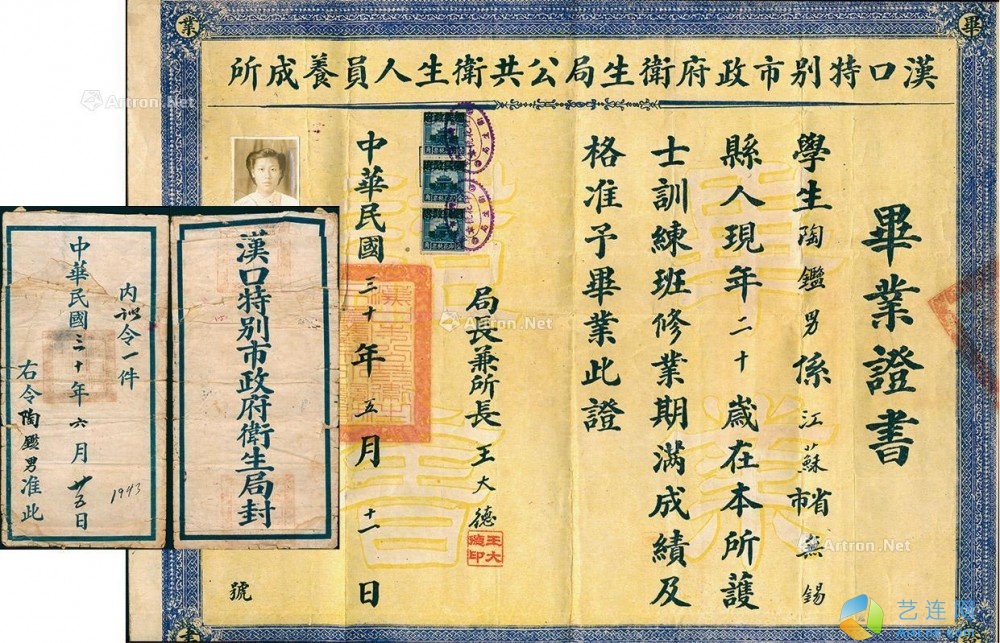 漢口特别市政府衛生局公共衛生人員養成所
畢業證書
學生陶鑑男係江蘇省市無錫
縣人現年二十歲在本所護
士訓練班修業期滿成績及
格准予畢業此證
局長兼所長王大德
王大德印
中華民國三十年五月十一日
號
畢
業
漢口特别市政府衛生局封
內訓令一件
中華民國三十年六月廿五日
右令陶鑑男准此
1943
Artron.Net
Artron.Net
Artron.Net
艺连网